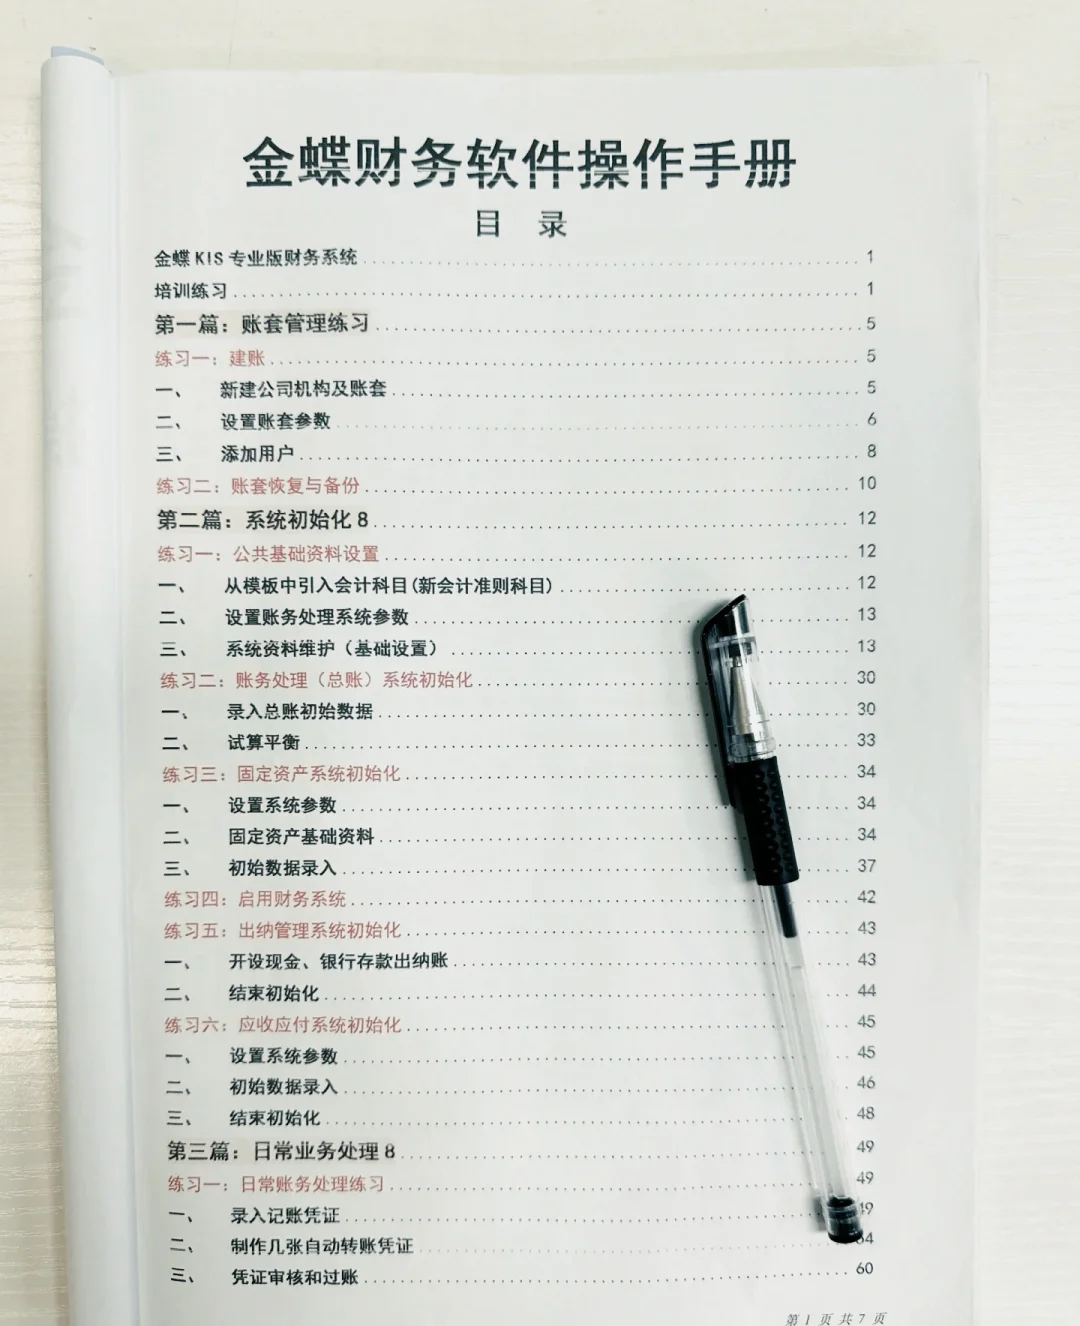 金蝶财务软件操作手册
目 录
金蝶 KIS 专业版财务系统 1
培训练习 1
第一篇：账套管理练习 5
练习一：建账 5
一、 新建公司机构及账套 5
二、 设置账套参数 6
三、 添加用户 8
练习二：账套恢复与备份 10
第二篇：系统初始化 8 12
练习一：公共基础资料设置 12
一、 从模板中引入会计科目(新会计准则科目) 12
二、 设置账务处理系统参数 13
三、 系统资料维护（基础设置） 13
练习二：账务处理（总账）系统初始化 30
一、 录入总账初始数据 30
二、 试算平衡 33
练习三：固定资产系统初始化 34
一、 设置系统参数 34
二、 固定资产基础资料 34
三、 初始数据录入 37
练习四：启用财务系统 42
练习五：出纳管理系统初始化 43
一、 开设现金、银行存款出纳账 43
二、 结束初始化 44
练习六：应收应付系统初始化 45
一、 设置系统参数 45
二、 初始数据录入 46
三、 结束初始化 48
第三篇：日常业务处理 8 49
练习一：日常账务处理练习 49
一、 录入记账凭证
二、 制作几张自动转账凭证
三、 凭证审核和过账 60
第 1 页 共 7 页